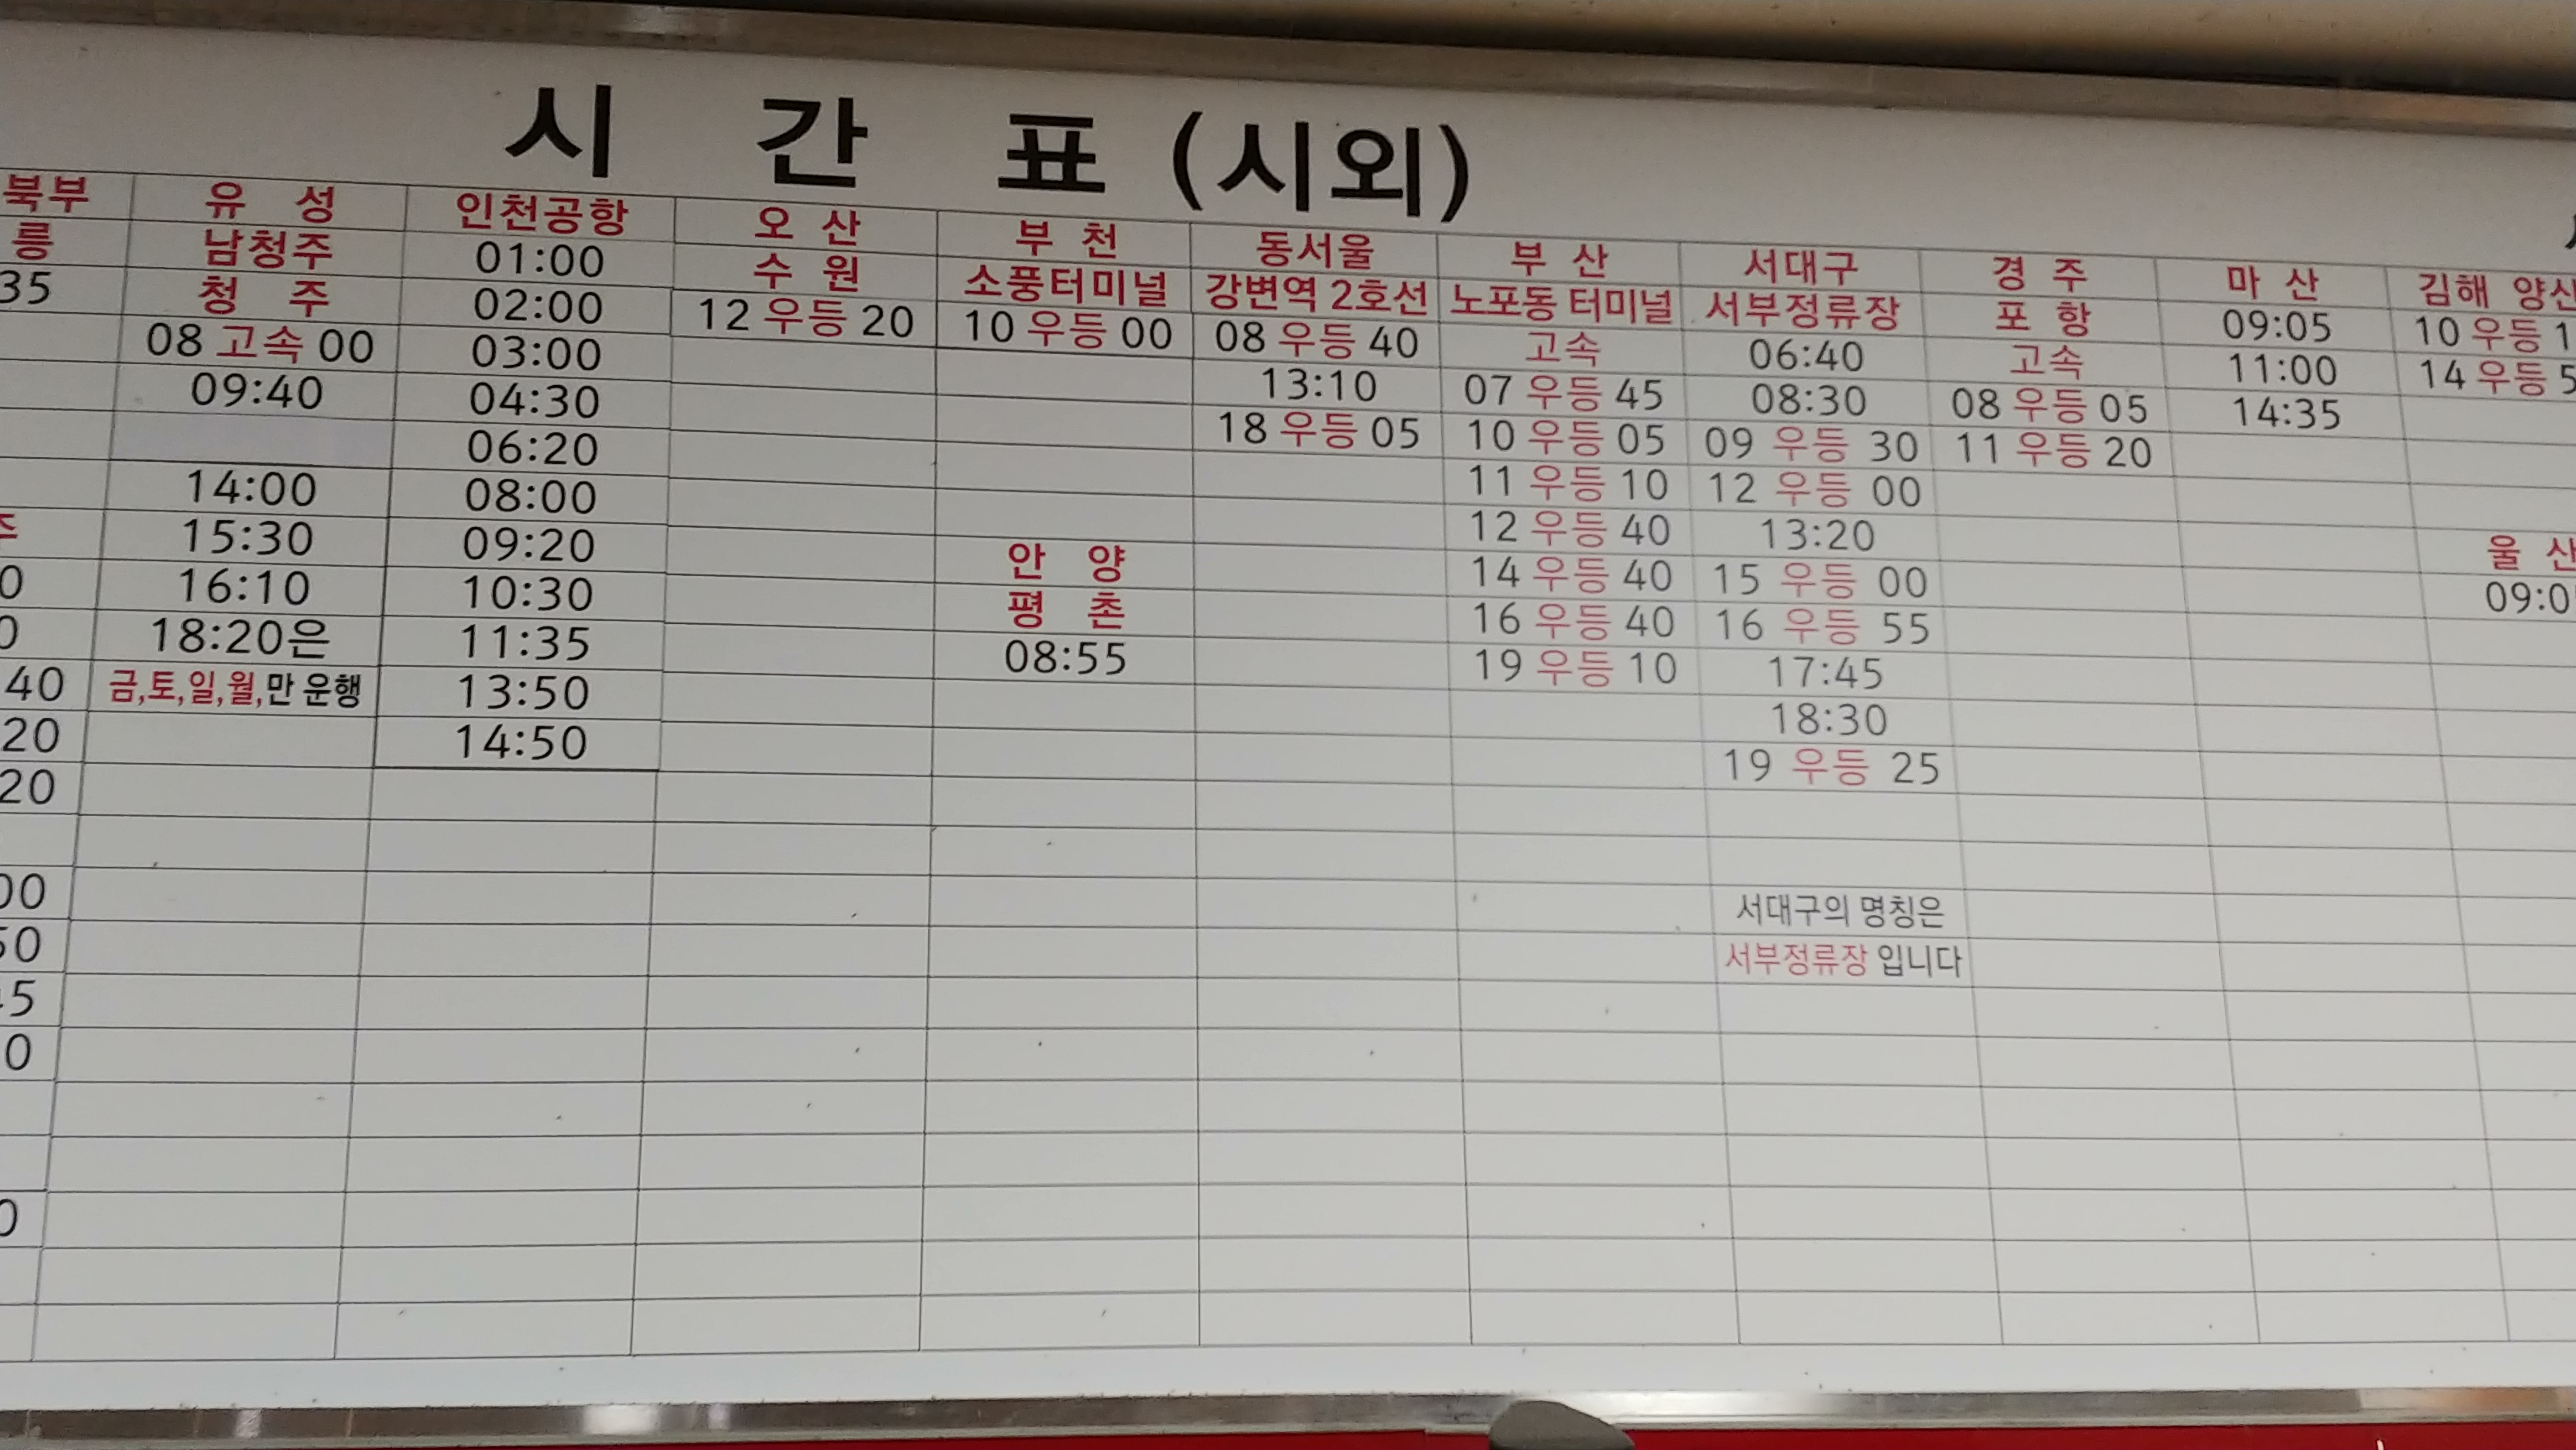 시 간 표 (시외)
북부 유 성 인천공항 오 산 부 천 동서울 부 산 서대구 경 주 마 산 김해 양산
릉 남청주 01:00 수 원 소풍터미널 강변역 2호선 노포동 터미널 서부정류장 포 항 09:05 10 우등 1
35 청 주 02:00 12 우등 20 10 우등 00 08 우등 40 고속 06:40 고속 11:00 14 우등 5
08 고속 00 03:00 13:10 07 우등 45 08:30 08 우등 05 14:35
09:40 04:30 18 우등 05 10 우등 05 09 우등 30 11 우등 20
06:20 11 우등 10 12 우등 00
14:00 08:00 12 우등 40 13:20 울 산
15:30 09:20 안 양 14 우등 40 15 우등 00 09:0
0 16:10 10:30 평 촌 16 우등 40 16 우등 55
0 18:20은 11:35 08:55 19 우등 10 17:45
40 금,토,일,월,만 운행 13:50 18:30
20 14:50 19 우등 25
20
00 서대구의 명칭은
50 서부정류장 입니다
5
0
0